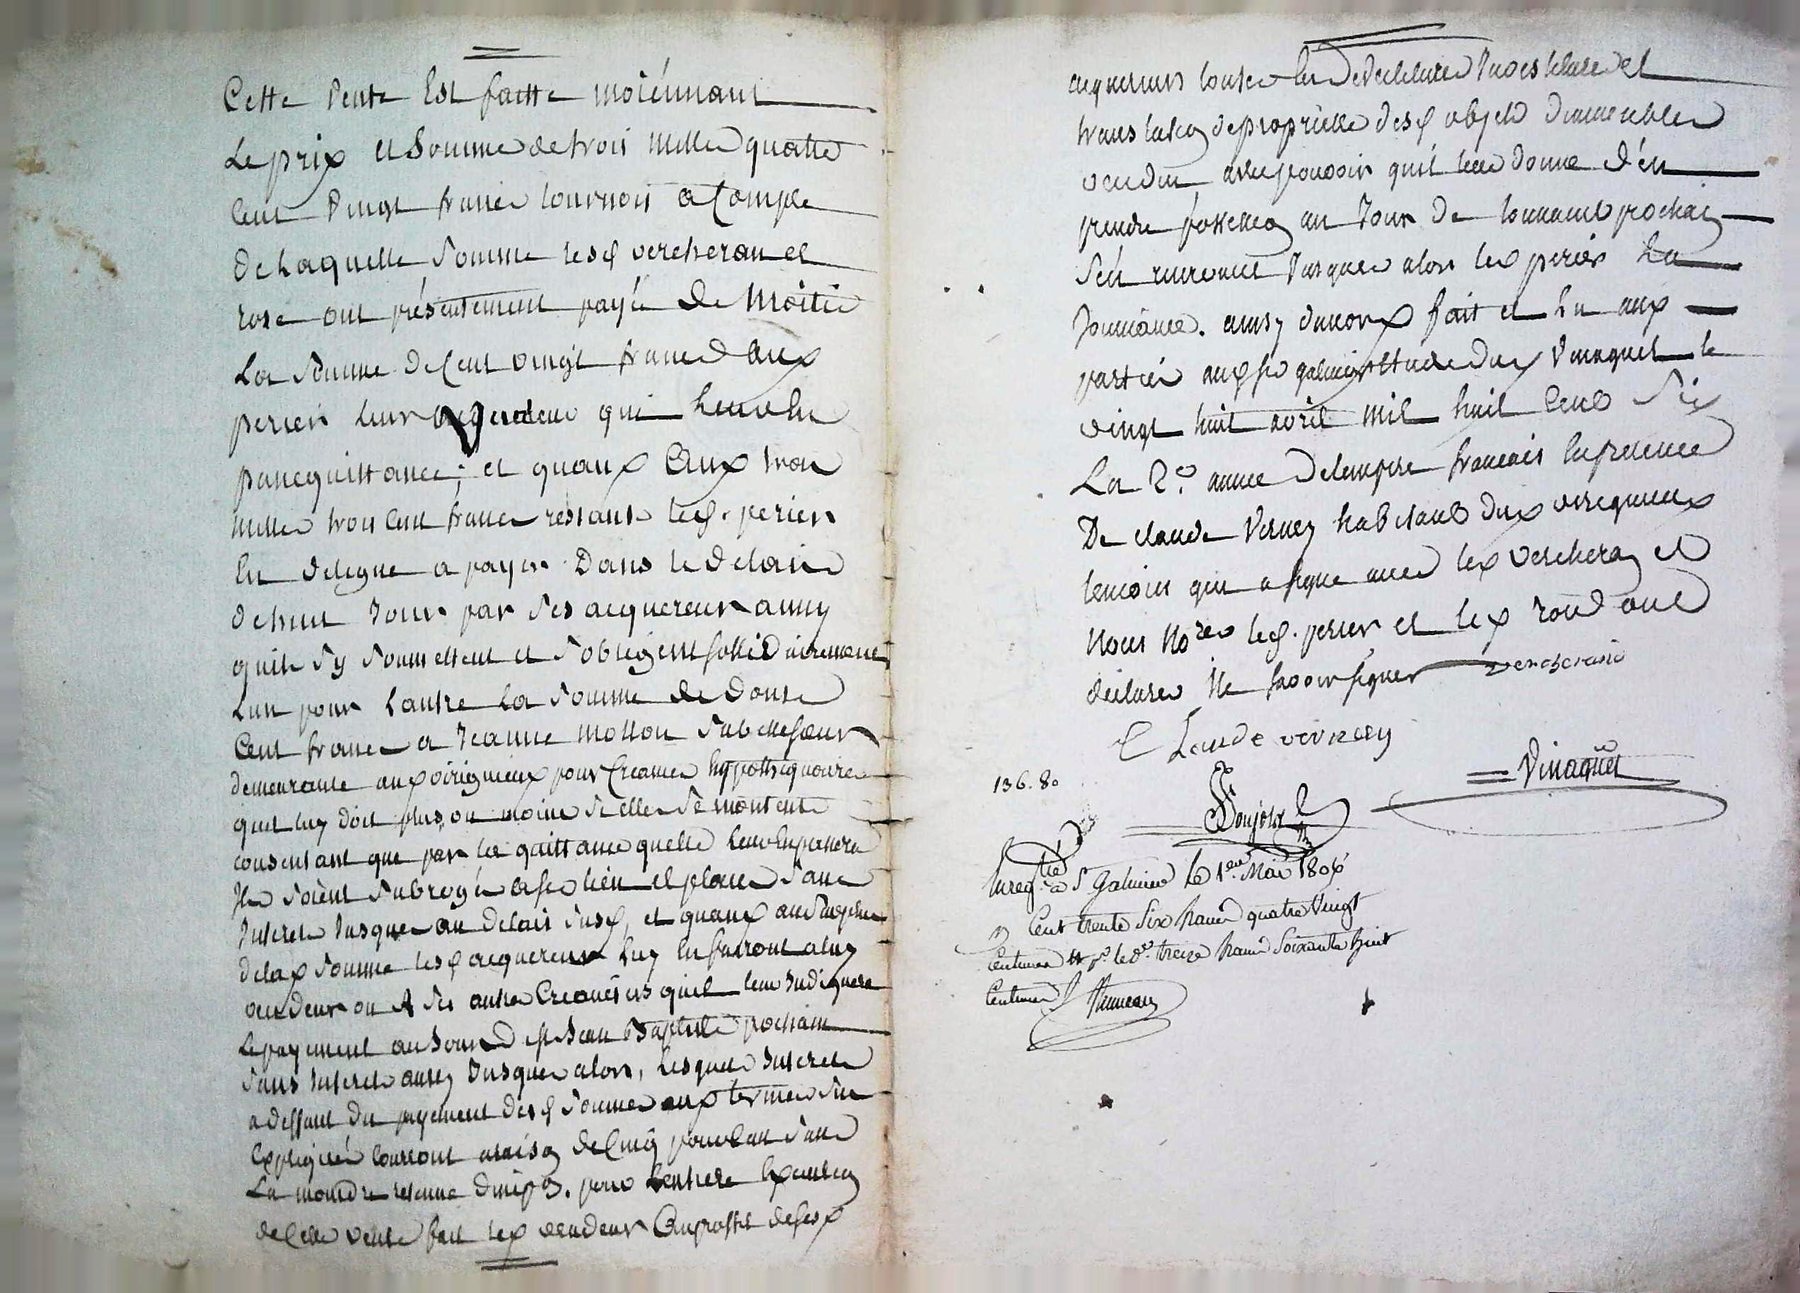 Cette vente Est faitte moiénnant
Le prix et Somme de trois mille quatre
Cent vingt francs tournois a Compte
de Laquelle Somme les vercherand et
rose ont présentement payé de Moitié
La Somme de Cent vingt francs aux
perier leur vendeur qui leur en
passe quittance; et quant aux trois
mille trois Cent francs restant led. perier
En delegue a payer Dans le delais
de huit Jour par ses acquereur ainsy
quils s'y soumettent et s'obligent sollidairement
L'un pour Lautre La Somme de douse
Cent francs a Jeanne mollon sa belle soeur
demeurante aux virigneux pour Creance hypothequaire
quil luy doit plus ou moins si elle se montent
consentant que par la quittance quelle leur En passera
Ils soient subrogé a ses lieu et place sans
Interets Jusque au delais susd. et quant au surplus
de la Somme lesd acquereur luy En fairont audit
vendeur ou A ses autre Creanciers quil leur Indiquera
Le payement au Jour de st Jean Baptiste prochain
sans Interets aussy Jusque alors, Lesquels Interets
a deffaut du payement desd Sommes aux termes sus
Expliqués Courront a raison de Cinq pour Cent sans
La moindre retenue pour L'entiere Execution
de Cette vente fait led vendeur Au proffit de ses
acquereurs toutes devestiture Investiture et
translation de proprietté desd objets d'immeubles
vendu, avec pouvoir qu'il leur donne d'en
prendre possession au Jour de toussaint prochain
s'en reservant Jusque alors led perier La
Jouissance. ainsy convenu fait et Lu aux
partiés au st galmier Etude dud Vinaquet le
vingt huit avril mil huit Cent Six
La 2.e année de lempire français En presence
De claude Verney habitant dud virigneux
temoin qui a signé avec led vercherand et
Nous No.res led. perier et led rose ont
declaré Ne savoir signer vercherand
C Laude verney
136. 80
Vinaquet
Enreg.tré a St Galmier Le 1.er Mai 1806
Cent trente Six francs quatre Vingt
Centimes pr. le d.e treize francs Soixante huit
Centimes